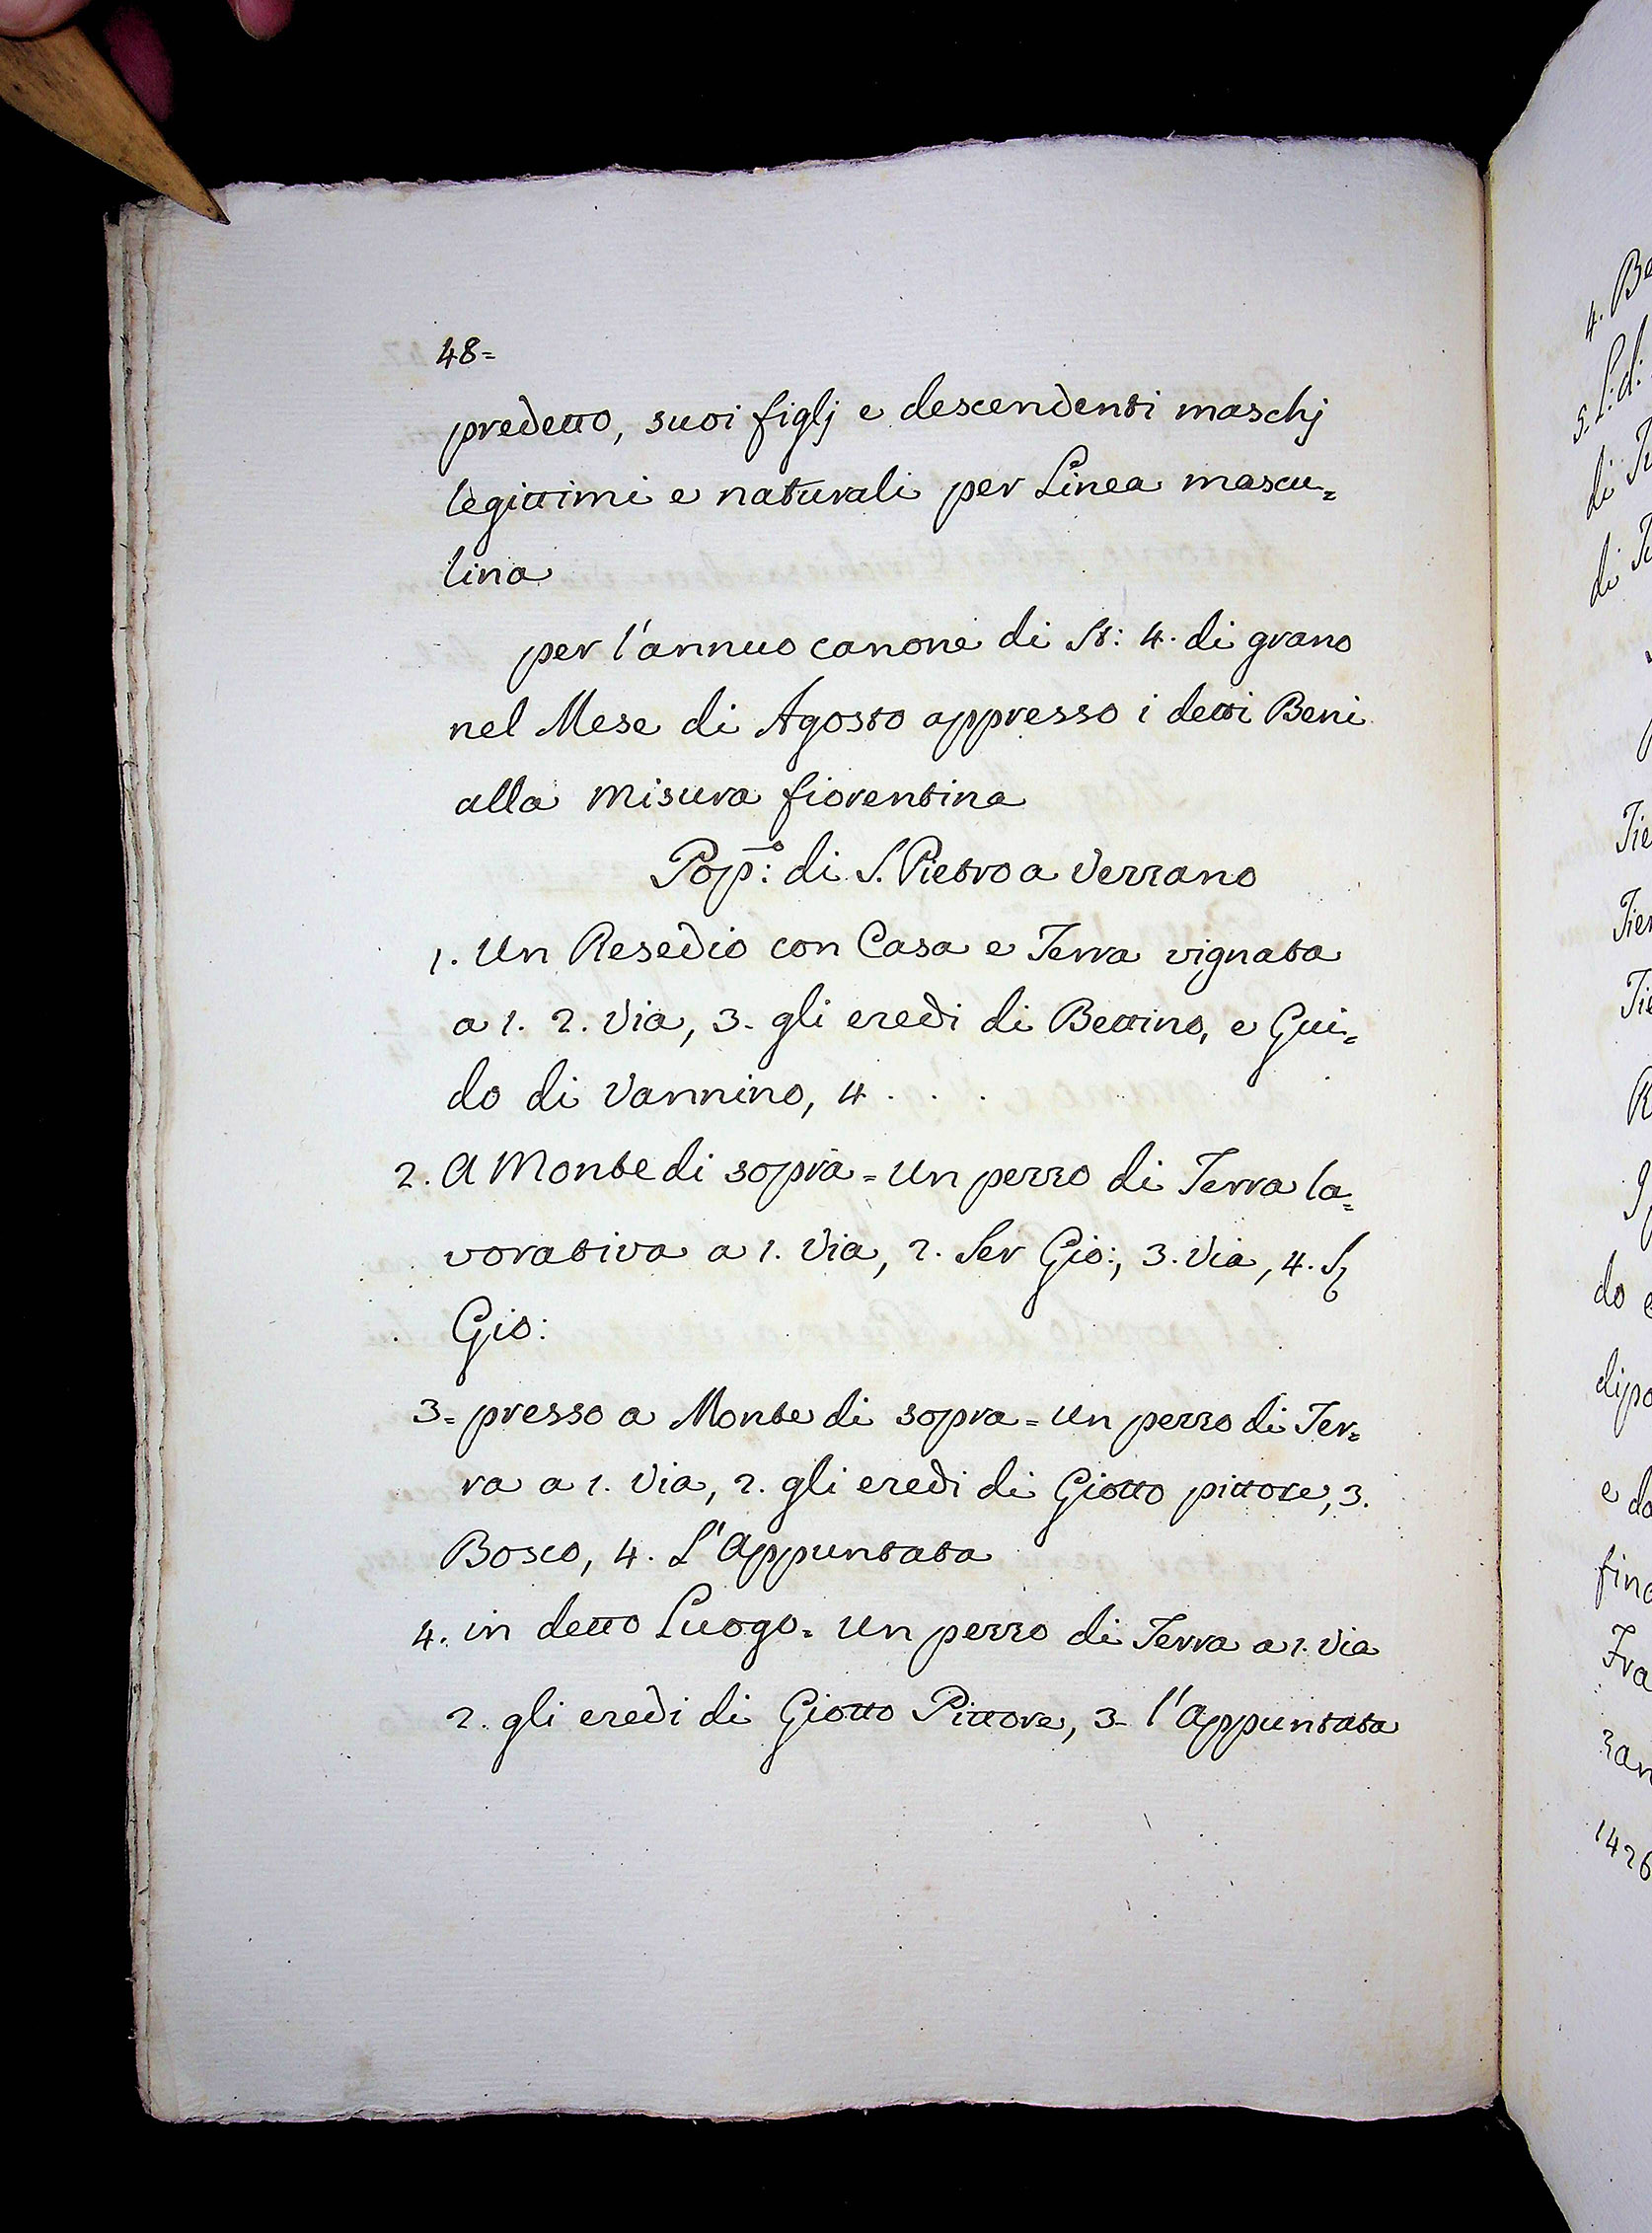 48=
predetto, suoi figlj e descendenti maschj
legittimi e naturali per Linea mascu=
lina
per l'annuo canone di St: 4. di grano
nel Mese di Agosto appresso i detti Beni
alla misura fiorentina
Pop:º di S. Pietro a Verzano
1. Un Resedio con Casa e Terra vignata
a 1. 2. Via, 3. gli eredi di Bettino, e Gui=
do di Vannino, 4 . . .
2. A Monte di sopra = Un pezzo di Terra la=
vorativa a 1. Via, 2. Ser Gio:, 3. Via, 4. Sr
Gio:
3= presso a Monte di sopra = Un pezzo di Ter=
ra a 1. Via, 2. gli eredi di Giotto pittore, 3.
Bosco, 4. L'Appuntata
4. in detto Luogo = Un pezzo di Terra a 1. Via
2. gli eredi di Giotto Pittore, 3= l'Appuntata
4. Be
5. L: di
di
di
Tie
Tie
Tie
do e
dipo
e do
fino
Fra
zan
1426